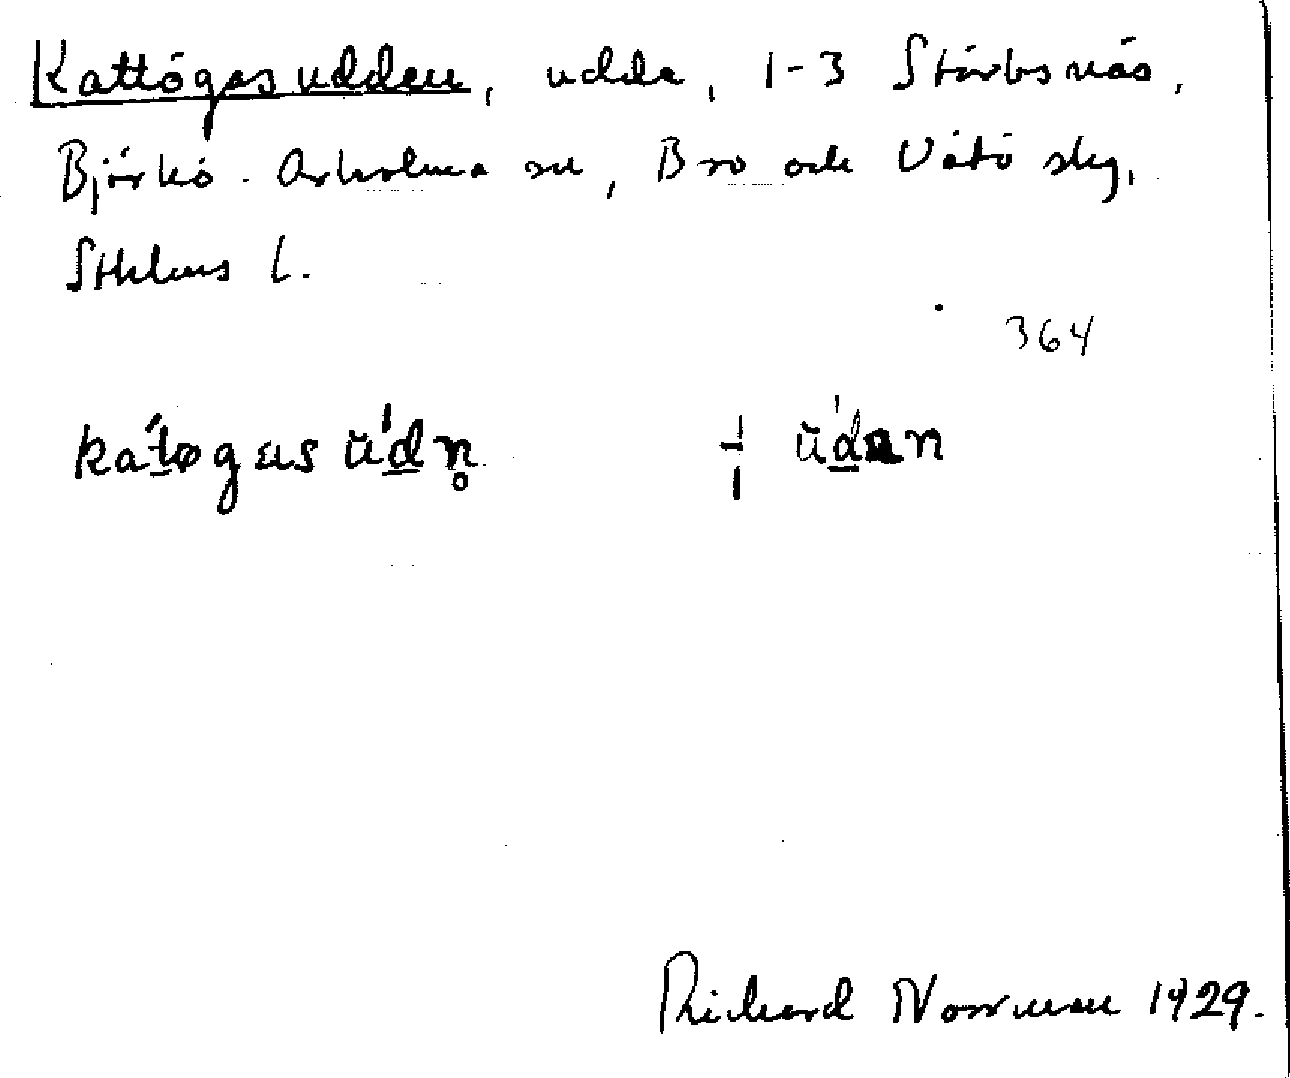 Kattögasudden, udde, 1-3 Störbsnäs,
Björkö-Arholma sn, Bro och Vätö skg,
Sthlms l.
364
Richard Norrman 1929.